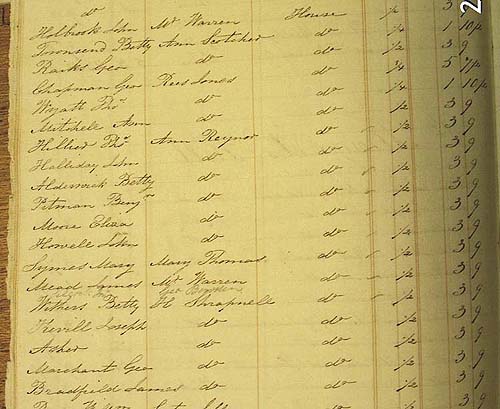 do
Holbrook John Mr Warren House 1/2 3 9
Townsend Betty Ann Scotcher do 1/4 1 10½
Raiks Geo do do 1/2 3 9
Chapman Geo Rees Jones do 3/4 5 7½
Wyatt Thos do do 1/4 1 10½
Mitchell Ann do do 1/2 3 9
Hillier Thos Ann Raynor do 1/2 3 9
Halliday John do do 1/2 3 9
Alderwick Betty do do 1/2 3 9
Pitman Benjn do do 1/2 3 9
Moore Eliza do do 1/2 3 9
Howell John do do 1/2 3 9
Symes Mary Mary Thomas do 1/2 3 9
Mead James Mr Warren do 1/2 3 9
Withers Betty H Shrapnell do 1/2 3 9
Trevill Joseph do do 1/2 3 9
Asher do do 1/2 3 9
Marchant Geo do do 1/2 3 9
Bradfield James do do 1/2 3 9
2